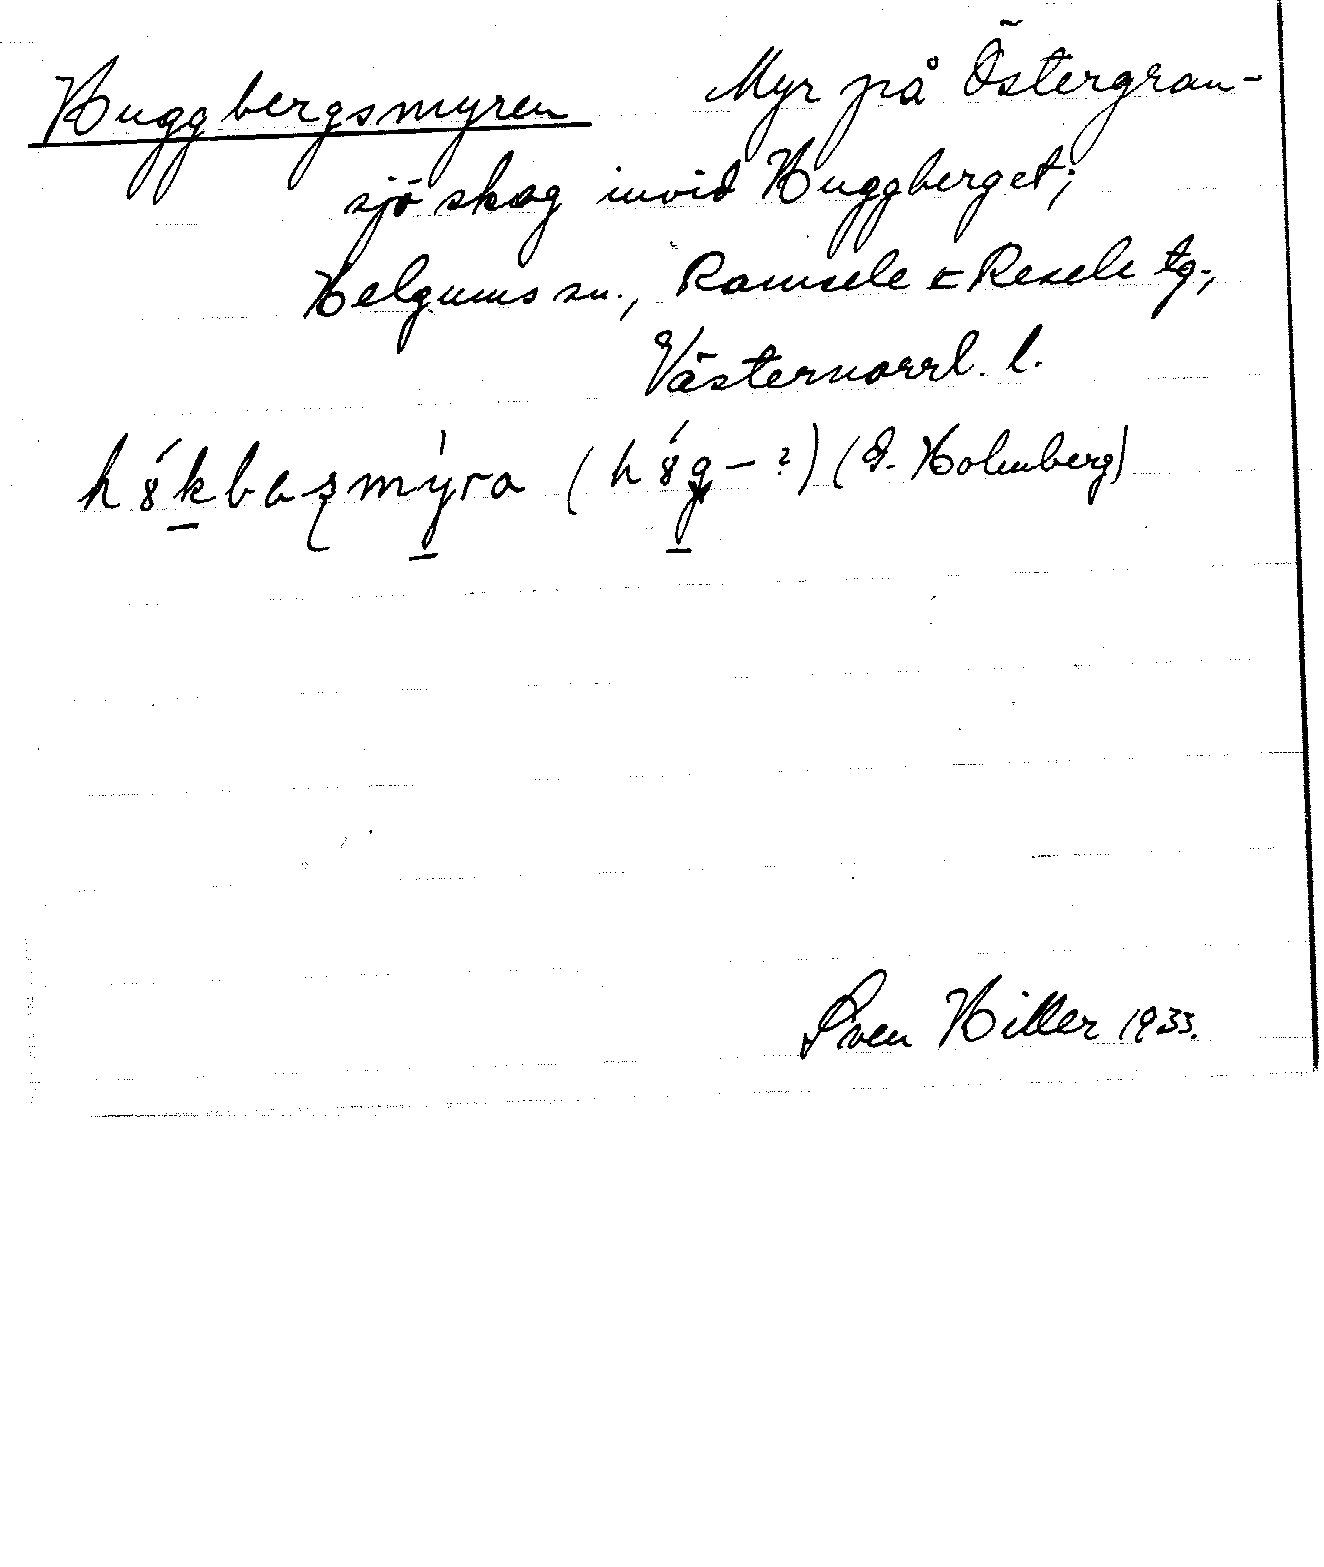 Huggbergsmyren Myr på Östergran-
sjö skog invid Huggberget;
Helgums sn., Ramsele o Resele tg.,
Västernorrl. l.
(Holmberg)
Sven Hiller 1933.